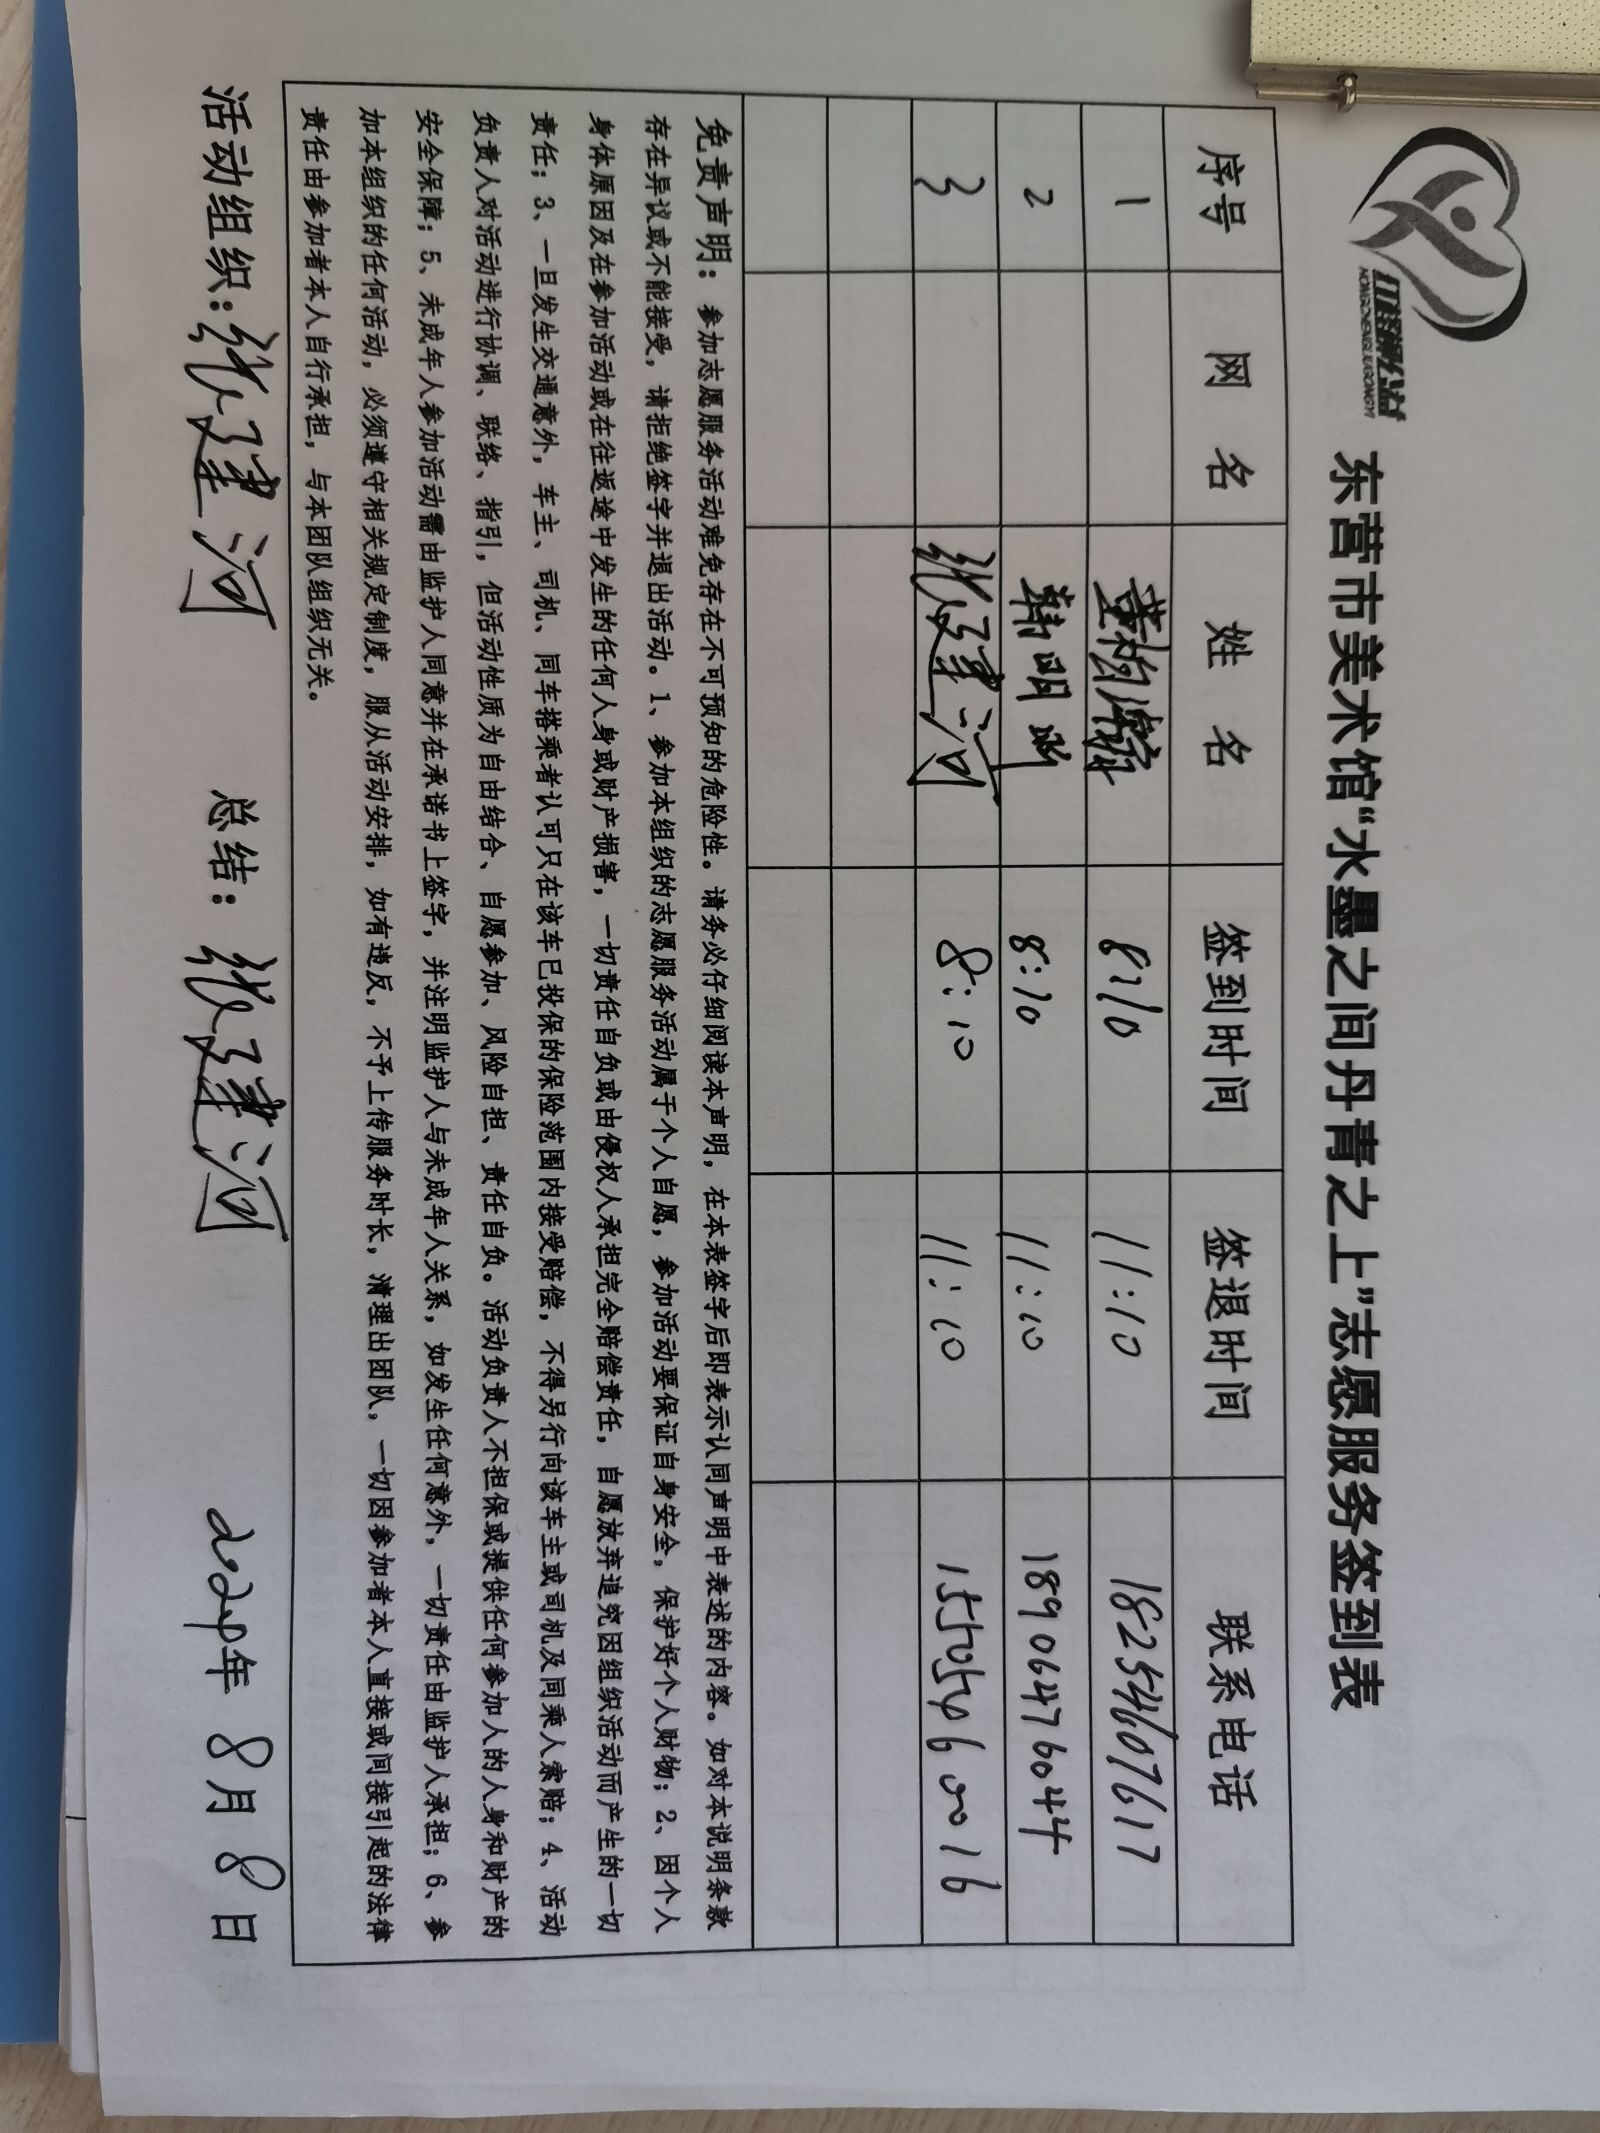 东营市美术馆“水墨之间丹青之上”志愿服务签到表
序号 网 名 姓 名 签到时间 签退时间 联系电话
1 8:10 11:10 18254607617
2 韩明明 8:10 11:10 18906476044
3 张建河 8:10 11:10
免责声明： 参加志愿服务活动难免存在不可预知的危险性。请务必仔细阅读本声明，在本表签字后即表示认同声明中表述的内容。如对本说明条款
存在异议或不能接受，请拒绝签字并退出活动。1、参加本组织的志愿服务活动属于个人自愿，参加活动要保证自身安全，保护好个人财物；2、因个人
身体原因及在参加活动或在往返途中发生的任何人身或财产损害，一切责任自负或由侵权人承担完全赔偿责任，自愿放弃追究因组织活动而产生的一切
责任；3、一旦发生交通意外，车主、司机、同车搭乘者认可只在该车已投保的保险范围内接受赔偿，不得另行向该车主或司机及同乘人索赔；4、活动
负责人对活动进行协调、联络、指引，但活动性质为自由结合、自愿参加、风险自担、责任自负。活动负责人不担保或提供任何参加人的人身和财产的
安全保障；5、未成年人参加活动需由监护人同意并在承诺书上签字，并注明监护人与未成年人关系，如发生任何意外，一切责任由监护人承担；6、参
加本组织的任何活动，必须遵守相关规定制度，服从活动安排，如有违反，不予上传服务时长，清理出团队，一切因参加者本人直接或间接引起的法律
责任由参加者本人自行承担，与本团队组织无关。
活动组织：张建河 总结：张建河 2024年 8月 8日